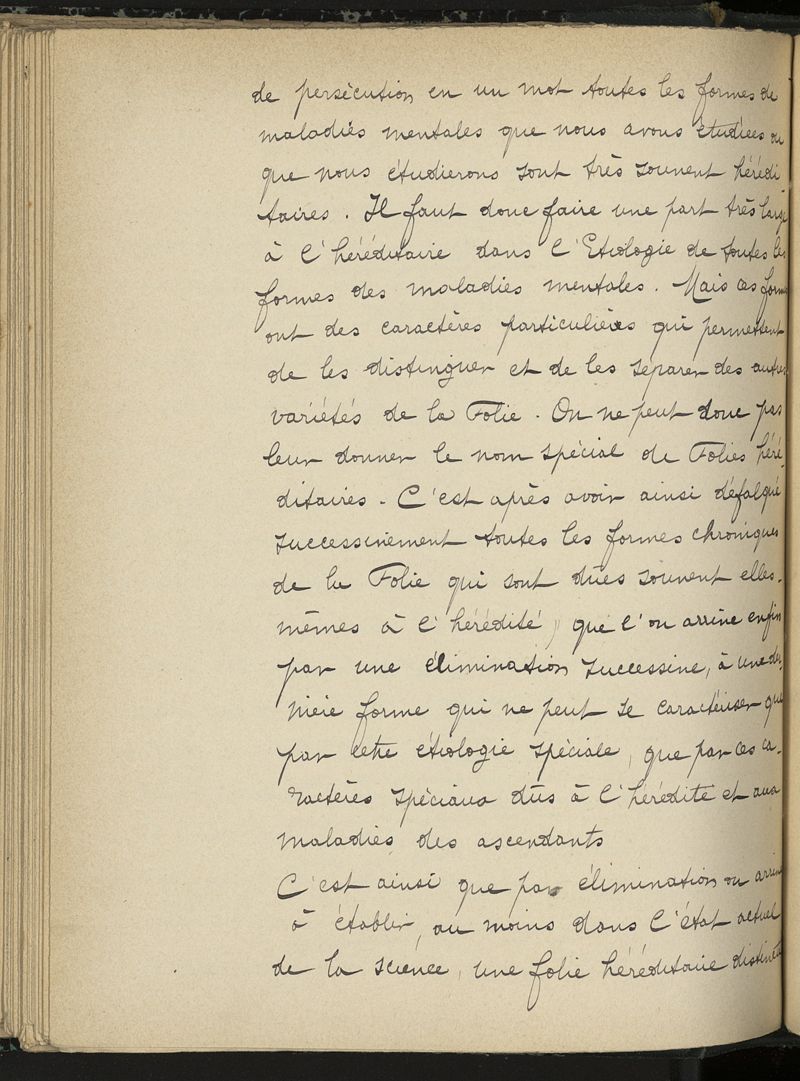 de persécution en un mot toutes les formes de
maladies mentales que nous avons étudiées ou
que nous étudierons sont très souvent hérédi
taires. Il faut donc faire une part très large
à l'héréditaire dans l'Etiologie de toutes les
formes des maladies mentales. Mais ces formes
ont des caractères particulières qui permettent
de les distinguer et de les séparer des autres
variétés de la Folie. On ne peut donc pas
leur donner le nom spécial de Folies héré-
ditaires. C'est après avoir ainsi défalqué
successivement toutes les formes chroniques
de la Folie qui sont dûes souvent elles-
mêmes à l'hérédité, que l'on arrive enfin
par une élimination successive, à une der-
nière forme qui ne peut se caractériser que
par cette étiologie spéciale, que par ces ca-
ractères spéciaux dûs à l'hérédité et aux
maladies des ascendants
C'est ainsi que par élimination on arrive
à établir, au moins dans l'état actuel
de la science, une folie héréditaire distincte